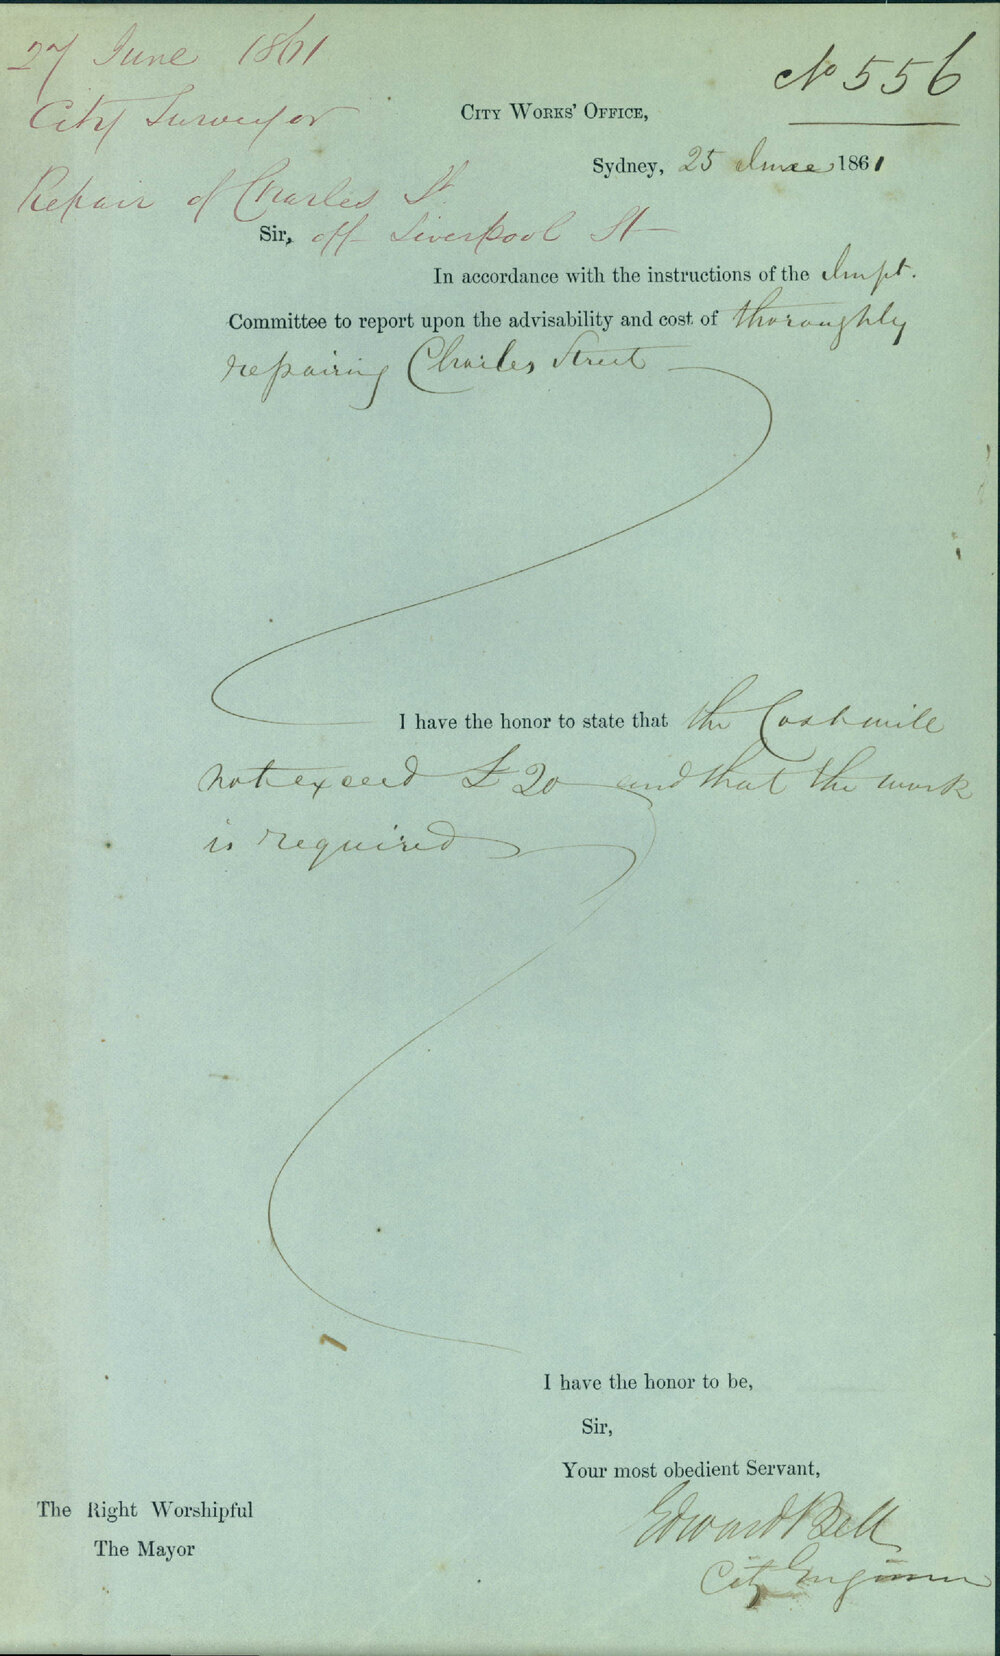 27 June 1861
City Surveyor
Repair of Charles St
off Liverpool St
No 556
City Works' Office,
Sydney, 25 June 1861
Sir,
In accordance with the instructions of the Impt.
Committee to report upon the advisability and cost of thoroughly
repairing Charles Street
I have the honor to state that the Cost will
not exceed £20 and that the work
is required
I have the honor to be,
Sir,
Your most obedient Servant,
Edward Bell
City Engineer
The Right Worshipful
The Mayor